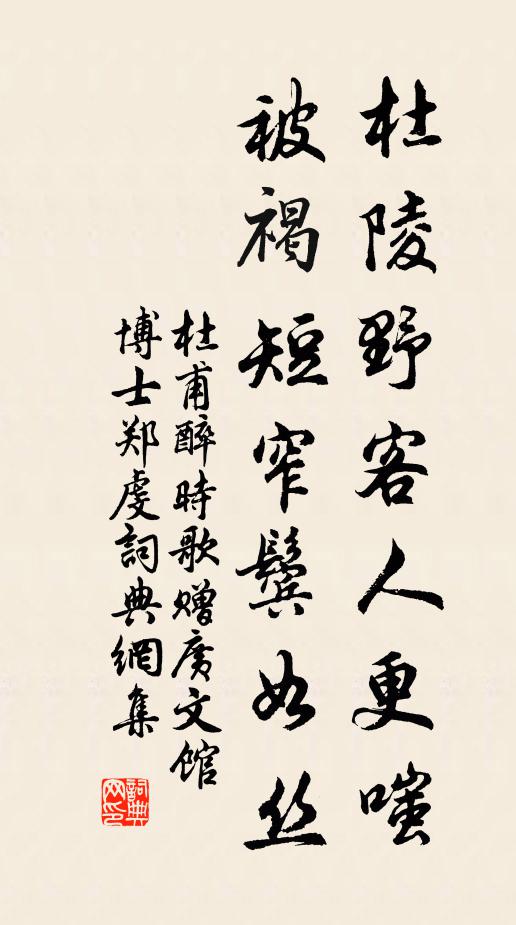 杜陵野客人更嗤
被褐短窄鬓如丝
杜甫醉時歌赠廣文馆
博士郑虔詞典網集
詞典
网印